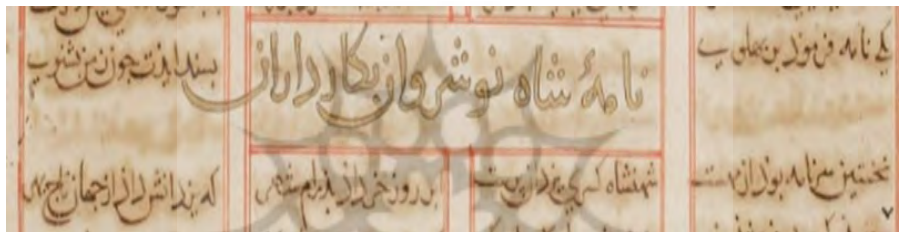 یکی نامه فرموذ بر پهلوی
بسند ایذت جون ز من بشنوی
نامهٔ شاه نوشروان بکارداران
نخستین سر نامه بوذ از مهست
شهنشاه کسری یزدان برست
بر روز خرداد بذرام شهر
که یزدانش داذ از جهان تاج بهر